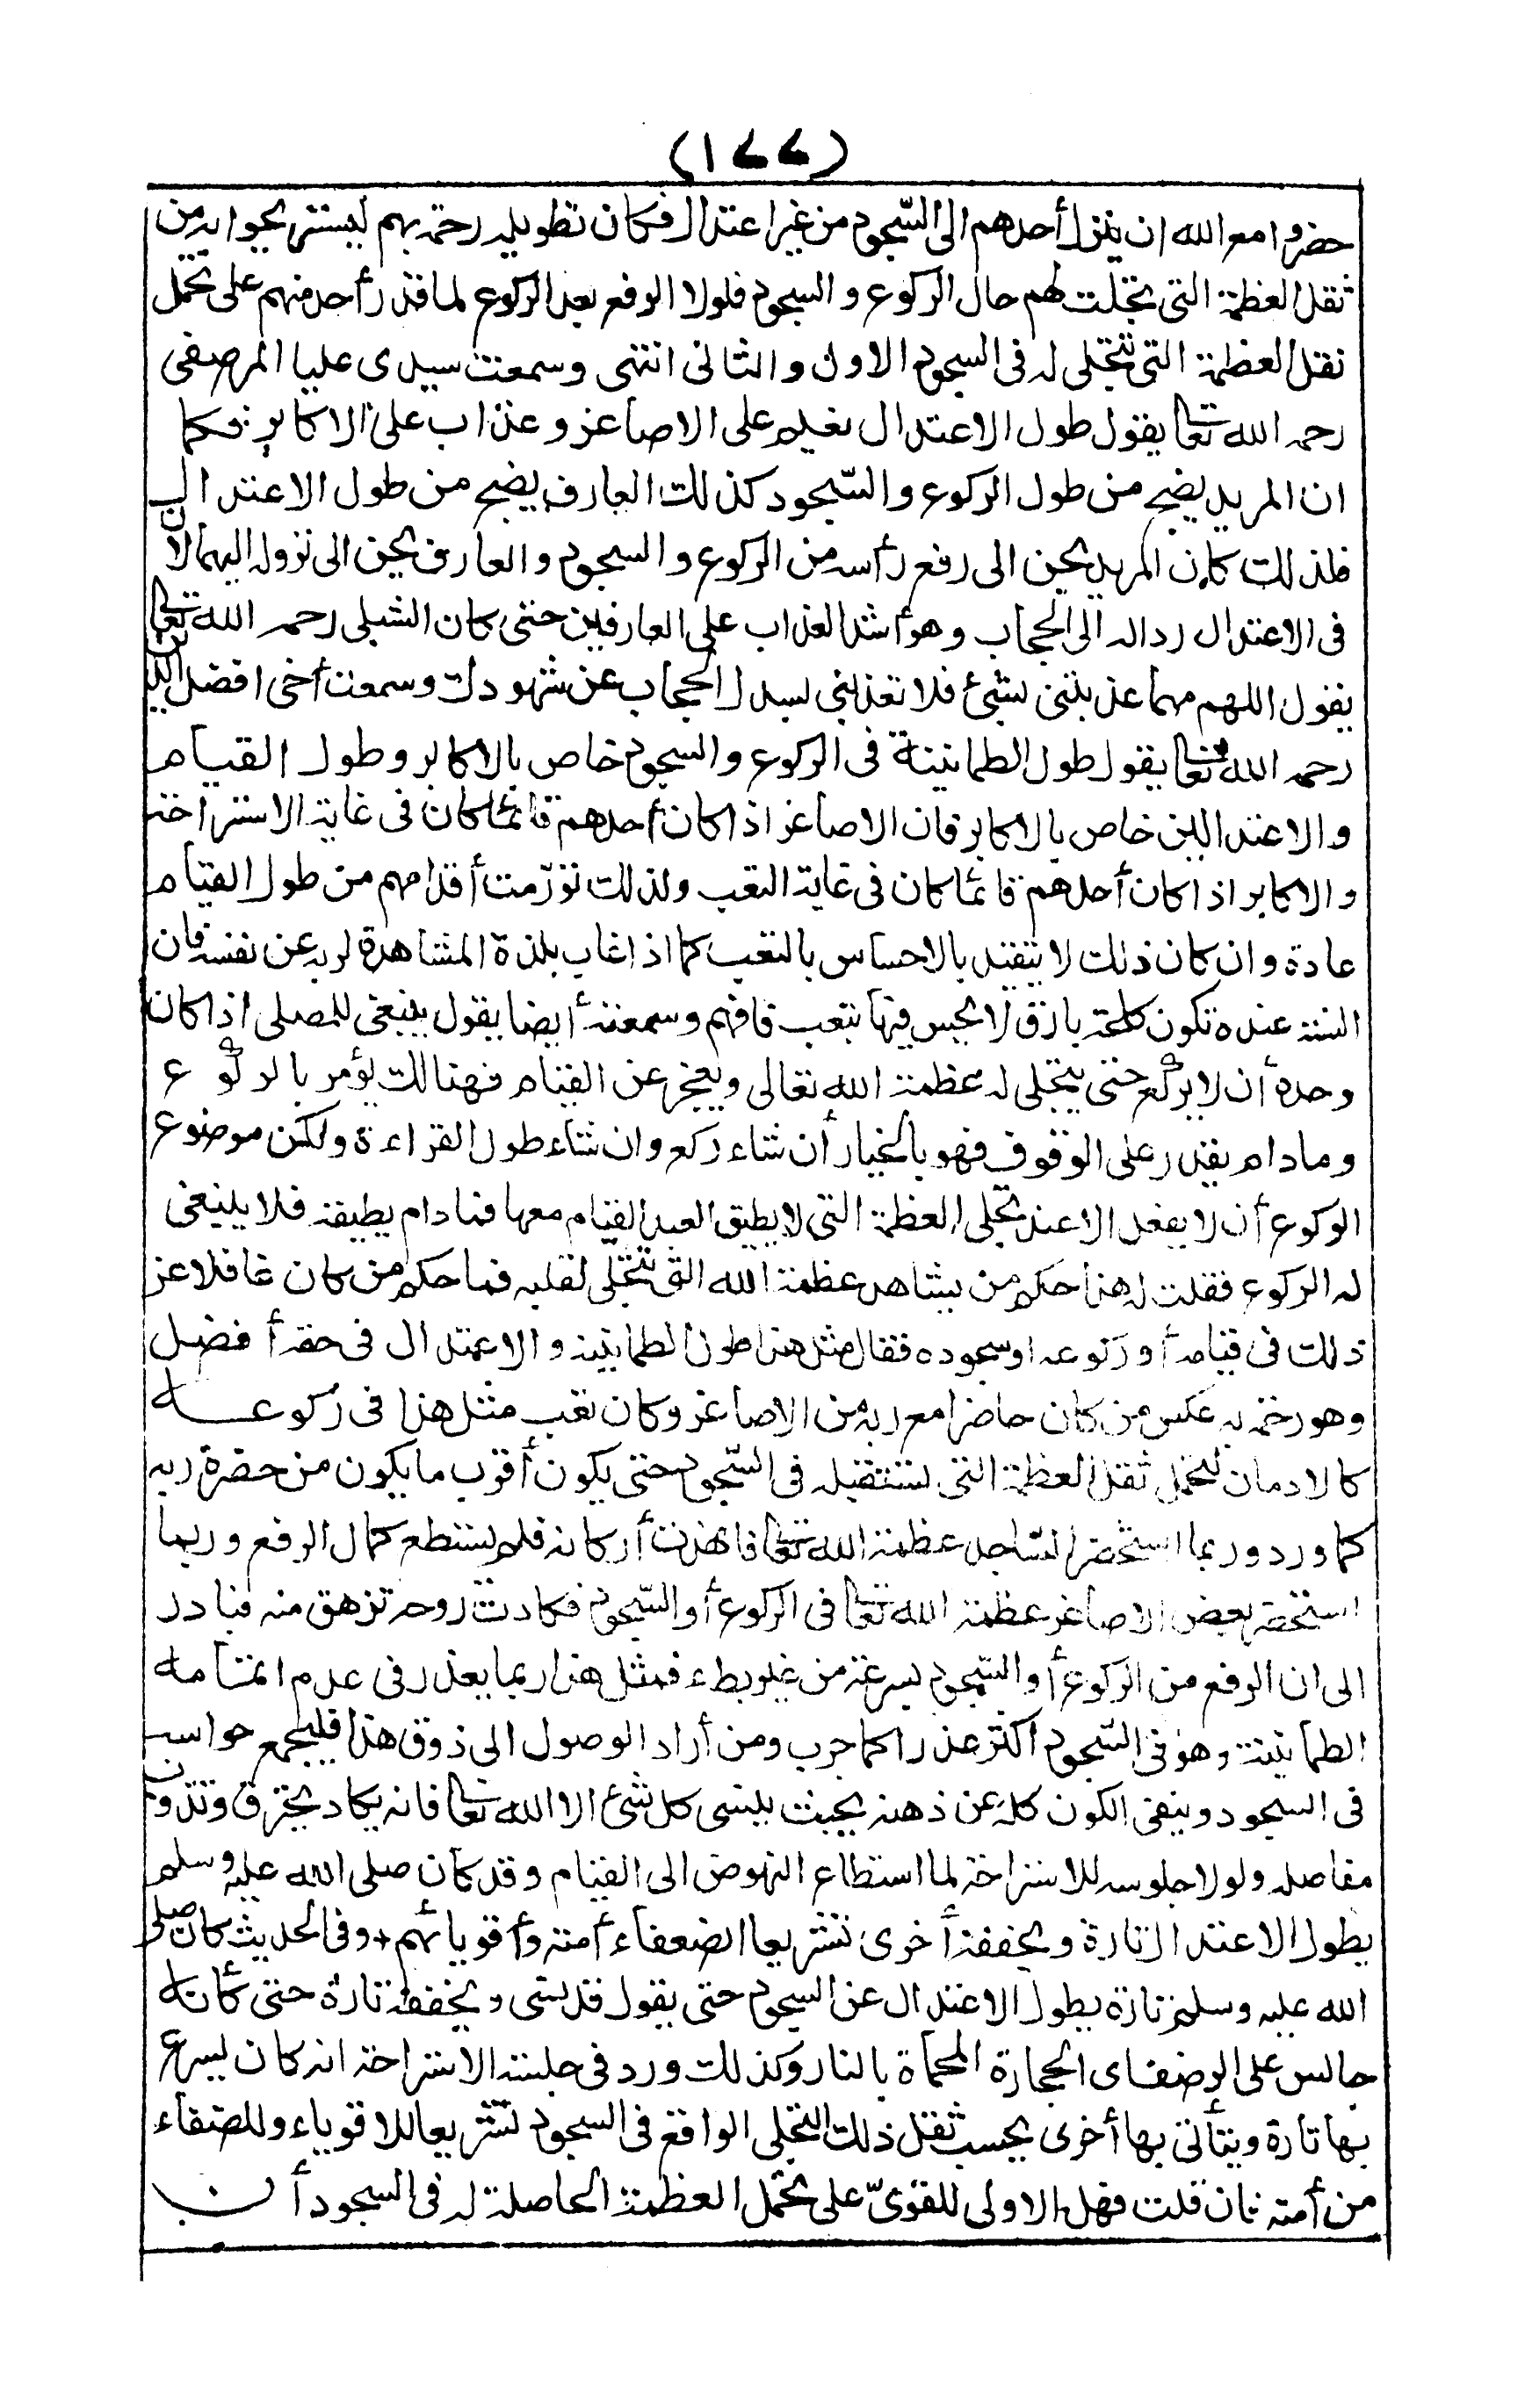 (١٢٢)
حضروا مع الله ان ينزل أحدهم الى السّجود من غير اعتدال فكان تطويله رحمة بهم ليستريحوا به من
ثقل العظمة التى تجلت لهم حال الركوع والسجود فلولا الرفع بعد الركوع لما قدر أحد منهم على تحمل
ثقل العظمة التى تتجلى له فى السجود الاول والثانى انتهى وسمعت سيدى عليا المرصفى
رحمه الله تعالى يقول طول الاعتدال نعيم على الاصاغر وعذاب على الاكابر فكما
ان المريد يضج من طول الركوع والسّجود كذلك العارف يضج من طول الاعتدال
فلذلك كان المريد يحن الى رفع رأسه من الركوع والسجود والعارف يحن الى نزوله اليهما لان
فى الاعتدال رداله الى الحجاب وهو أشد العذاب على العارفين حتى كان الشبلى رحمه الله تعالى
يقول اللهم مهما عذبتنى بشئ فلا تعذبنى بسدل الحجاب عن شهودك وسمعت أخى افضل الدين
رحمه الله تعالى يقول طول الطمانينة فى الركوع والسجود خاص بالاكابر وطول القيام
والاعتدالين خاص بالاكابر فان الاصاغر اذا كان أحدهم قائما كان فى غاية الاستراحة
والاكابر اذا كان أحدهم قائما كان فى غاية التعب ولذلك تورّمت أقدامهم من طول القيام
عادة وان كان ذلك لا يتقيد بالاحساس بالتعب كما اذا غاب بلذة المشاهدة لربه عن نفسه فان
السنة عنده تكون كلمحة بارق لا يحس فيها بتعب فافهم وسمعته أيضا يقول ينبغى للمصلى اذا كان
وحده أن لا يركع حتى يتجلى له عظمة الله تعالى ويعجز عن القيام فهنالك يؤمر بالركوع
وما دام يقدر على الوقوف فهو بالخيار أن شاء ركع وان شاء طول القراءة ولكن موضوع
الركوع أن لا يفعل الا عند تجلى العظمة التى لا يطيق العبد القيام معها فما دام يطيقه فلا ينبغى
له الركوع فقلت له هذا حكم من يشاهد عظمة الله التى تتجلّى لقلبه فما حكم من كان غافلا عن
ذلك فى قيامه أو ركوعه او سجوده فقال مثل هذا طول الطمانينة والاعتدال فى حقه أفضل
وهو رحمة به عكس من كان حاضرا مع ربه من الاصاغر وكان تعب مثل هذا فى ركوعه
كالادمان لتحمل ثقل العظمة التى تستقبله فى السّجود حتى يكون أقرب ما يكون من حضرة ربه
كما ورد وربما استحضر السّاجد عظمة الله تعالى فانهدت أركانه فلم يستطع كمال الرفع وربما
استحضر بعض الاصاغر عظمة الله تعالى فى الركوع أو السّجود فكادت روحه تزهق منه فبادر
الى ان الرفع من الركوع أو السّجود بسرعة من غير بطء فمثل هذا ربما يعذر فى عدم اتمامه
الطمانينة وهو فى السّجود اكثر عذرا كما جرب ومن أراد الوصول الى ذوق هذا فليجمع حواسه
فى السجود وينفى الكون كله عن ذهنه بحيث ينسى كل شئ الا الله تعالى فانه يكاد يحترق وتذوب
مفاصله ولولا جلوسه للاستراحة لما استطاع النهوض الى القيام وقد كان صلى الله عليه وسلم
يطول الاعتدال تارة ويخففه أخرى تشريعا لضعفاء أمته وأقويائهم وفى الحديث كان صلى
الله عليه وسلم تارة يطول الاعتدال عن السجود حتى يقول قد نسى ويخففه تارة حتى كأنه
جالس على الرضف اى الحجارة المحماة بالنار وكذلك ورد فى جلسة الاستراحة انه كان يسرع
بها تارة ويتأنى بها أخرى بحسب ثقل ذلك التجلى الواقع فى السجود تشريعا للاقوياء وللضعفاء
من أمته فان قلت فهل الاولى للقوىّ على تحمل العظمة الحاصلة له فى السجود أن